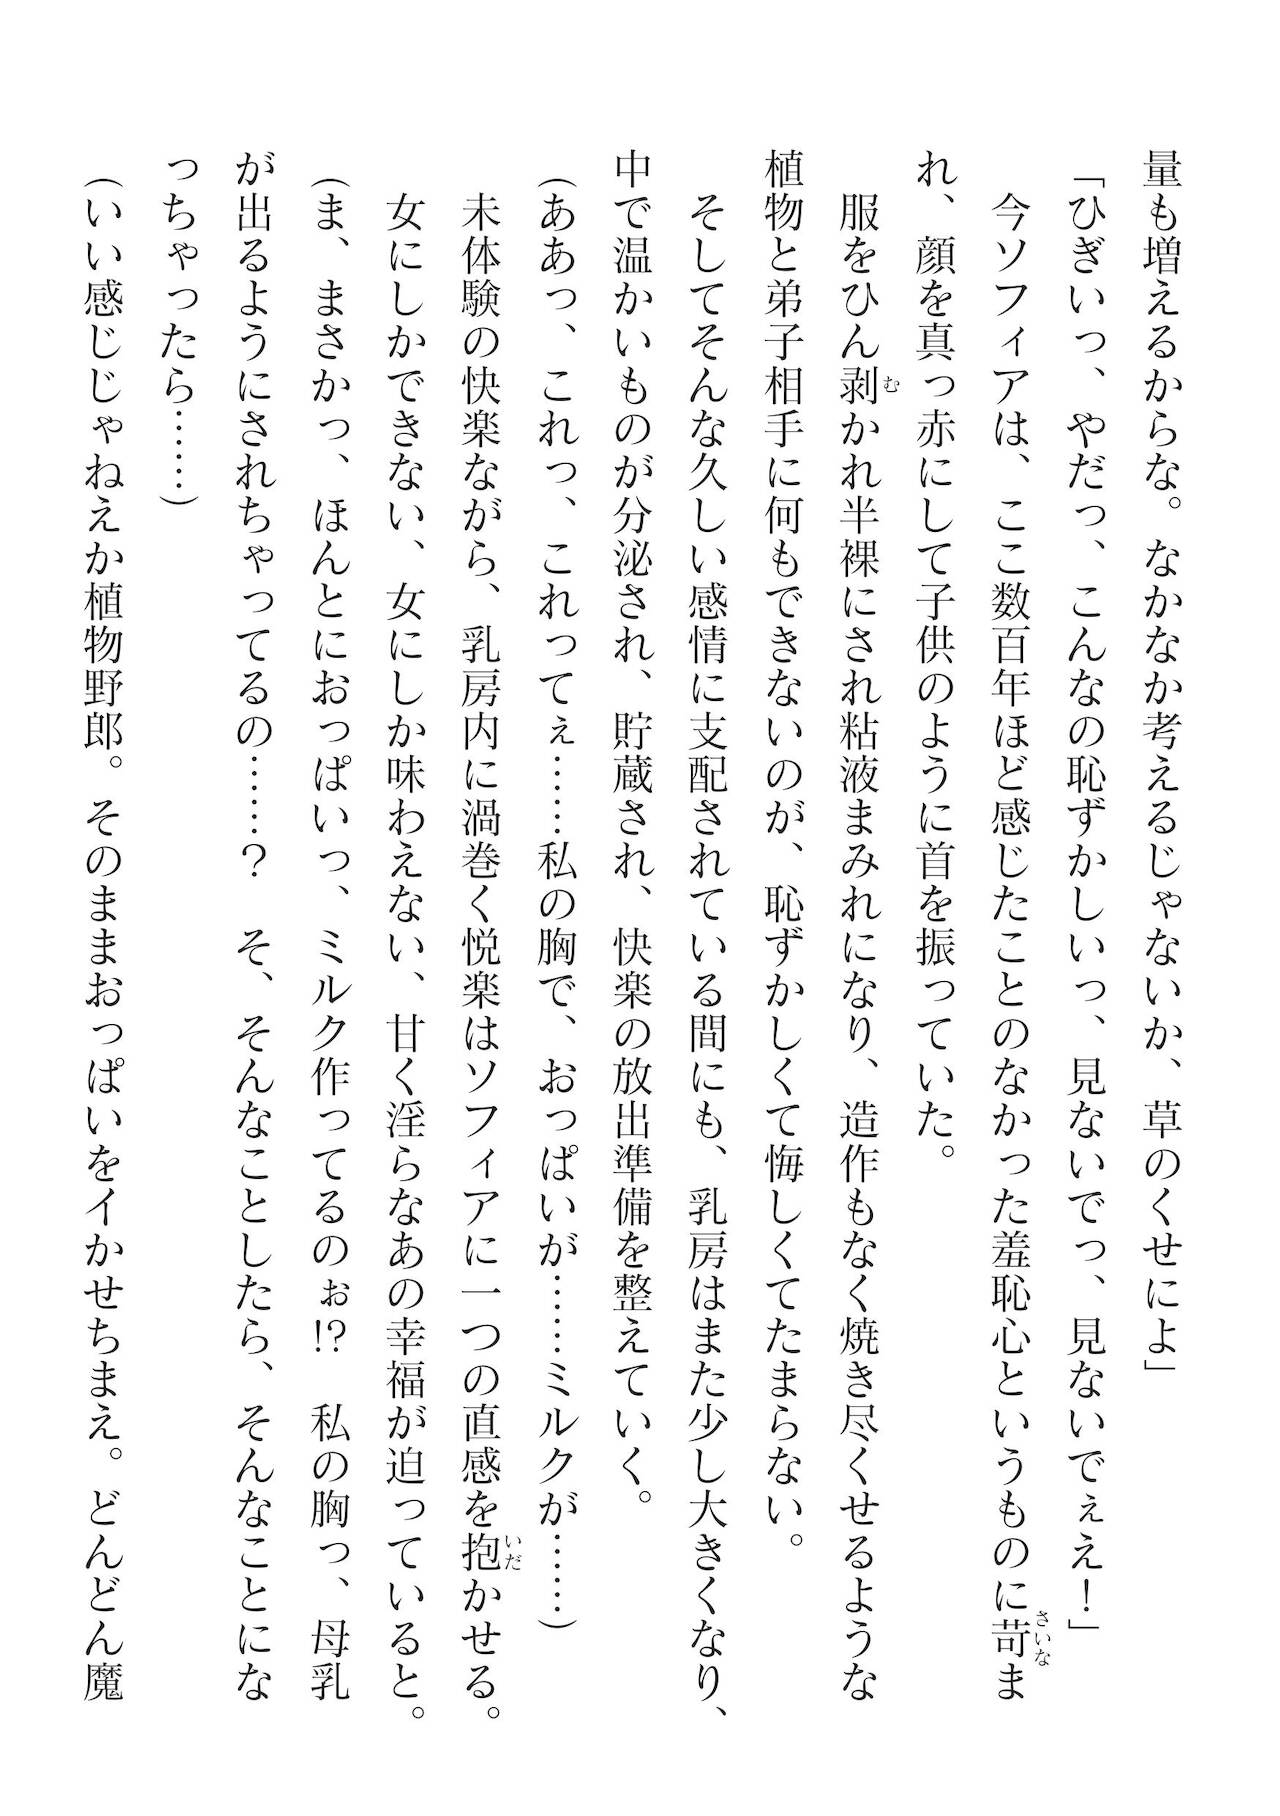 量も増えるからな。なかなか考えるじゃないか、草のくせによ」
「ひぎいっ、やだっ、こんなの恥ずかしいっ、見ないでっ、見ないでぇえ！」
　今ソフィアは、ここ数百年ほど感じたことのなかった羞恥心というものに苛ま
れ、顔を真っ赤にして子供のように首を振っていた。
　服をひん剥かれ半裸にされ粘液まみれになり、造作もなく焼き尽くせるような
植物と弟子相手に何もできないのが、恥ずかしくて悔しくてたまらない。
　そしてそんな久しい感情に支配されている間にも、乳房はまた少し大きくなり、
中で温かいものが分泌され、貯蔵され、快楽の放出準備を整えていく。
（ああっ、これっ、これってぇ……私の胸で、おっぱいが……ミルクが……）
　未体験の快楽ながら、乳房内に渦巻く悦楽はソフィアに一つの直感を抱かせる。
　女にしかできない、女にしか味わえない、甘く淫らなあの幸福が迫っていると。
（ま、まさかっ、ほんとにおっぱいっ、ミルク作ってるのぉ!?　私の胸っ、母乳
が出るようにされちゃってるの……？　そ、そんなことしたら、そんなことにな
っちゃったら……）
（いい感じじゃねえか植物野郎。そのままおっぱいをイかせちまえ。どんどん魔